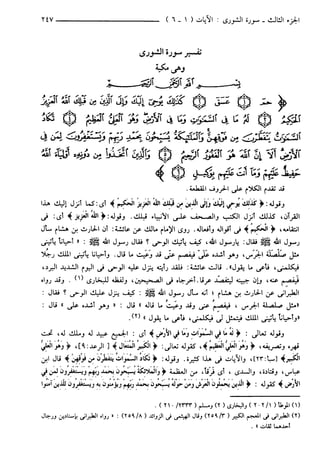 الجزء الثالث - سورة الشورى : الآيات ( ١ - ٦ ) ٢٤٧
تفسير سورة الشورى
وهى مكية
بسم الله الرحمن الرحيم
﴿ حم ١ عسق ٢ كذلك يوحي إليك وإلى الذين من قبلك الله العزيز
الحكيم ٣ له ما في السموات وما في الأرض وهو العلي العظيم ٤ تكاد
السموات يتفطرن من فوقهن والملائكة يسبحون بحمد ربهم ويستغفرون لمن في
الأرض ألا إن الله هو الغفور الرحيم ٥ والذين اتخذوا من دونه أولياء الله
حفيظ عليهم وما أنت عليهم بوكيل ٦ ﴾
قد تقدم الكلام على الحروف المقطعة.
وقوله: ﴿ كذلك يوحي إليك وإلى الذين من قبلك الله العزيز الحكيم ﴾ أى: كما أنزل إليك هذا
القرآن، كذلك أنزل الكتب والصحف على الأنبياء قبلك. وقوله: ﴿ الله العزيز ﴾ أى: فى
انتقامه، ﴿ الحكيم ﴾ فى أقواله وأفعاله. روى الإمام مالك عن عائشة: أن الحارث بن هشام سأل
رسول الله ﷺ فقال: يا رسول الله، كيف يأتيك الوحى ؟ فقال رسول الله ﷺ: « أحيانا يأتينى
مثل صلصلة الجرس، وهو أشده على فيفصم عنى قد وعيت ما قال. وأحيانا يأتينى الملك رجلا
فيكلمنى، فأعى ما يقول». قالت عائشة: فلقد رأيته ينزل عليه الوحى فى اليوم الشديد البرد،
فيفصم عنه، وإن جبينه ليتفصد عرقا. أخرجاه فى الصحيحين، ولفظه للبخارى (١) . وقد رواه
الطبرانى عن الحارث بن هشام ؛ أنه سأل رسول الله ﷺ : كيف ينزل عليك الوحى ؟ فقال :
«مثل صلصلة الجرس ، فيفصم عنى وقد وعيت ما قاله» قال : « وهو أشده على » قال :
«وأحيانا يأتينى الملك فيتمثل لى فيكلمنى، فأعى ما يقول » (٢).
وقوله تعالى : ﴿ له ما في السموات وما في الأرض ﴾ أى : الجميع عبيد له وملك له، تحت
قهره وتصريفه، ﴿ وهو العلي العظيم ﴾، كقوله تعالى: ﴿ الكبير المتعال ﴾ [ الرعد:٩]، ﴿ وهو العلي
الكبير ﴾ [سبأ:٢٣]، والآيات فى هذا كثيرة. وقوله: ﴿ تكاد السموات يتفطرن من فوقهن ﴾ قال ابن
عباس، وقتادة، والسدى ، أى فَرَقاً، من العظمة ﴿ والملائكة يسبحون بحمد ربهم ويستغفرون لمن في
الأرض ﴾ كقوله : ﴿ الذين يحملون العرش ومن حوله يسبحون بحمد ربهم ويؤمنون به ويستغفرون للذين آمنوا
(١) الموطأ ( ١/ ٢٠٢ ) والبخارى ( ٢ ) ومسلم ( ٢٣٣٣ / ٢١٠ ) .
(٢) الطبرانى فى المعجم الكبير ( ٣/ ٢٥٩) وقال الهيثمى فى الزوائد ( ٨/ ٢٥٩) : « رواه الطبرانى بإسنادين ورجال
أحدهما ثقات » .